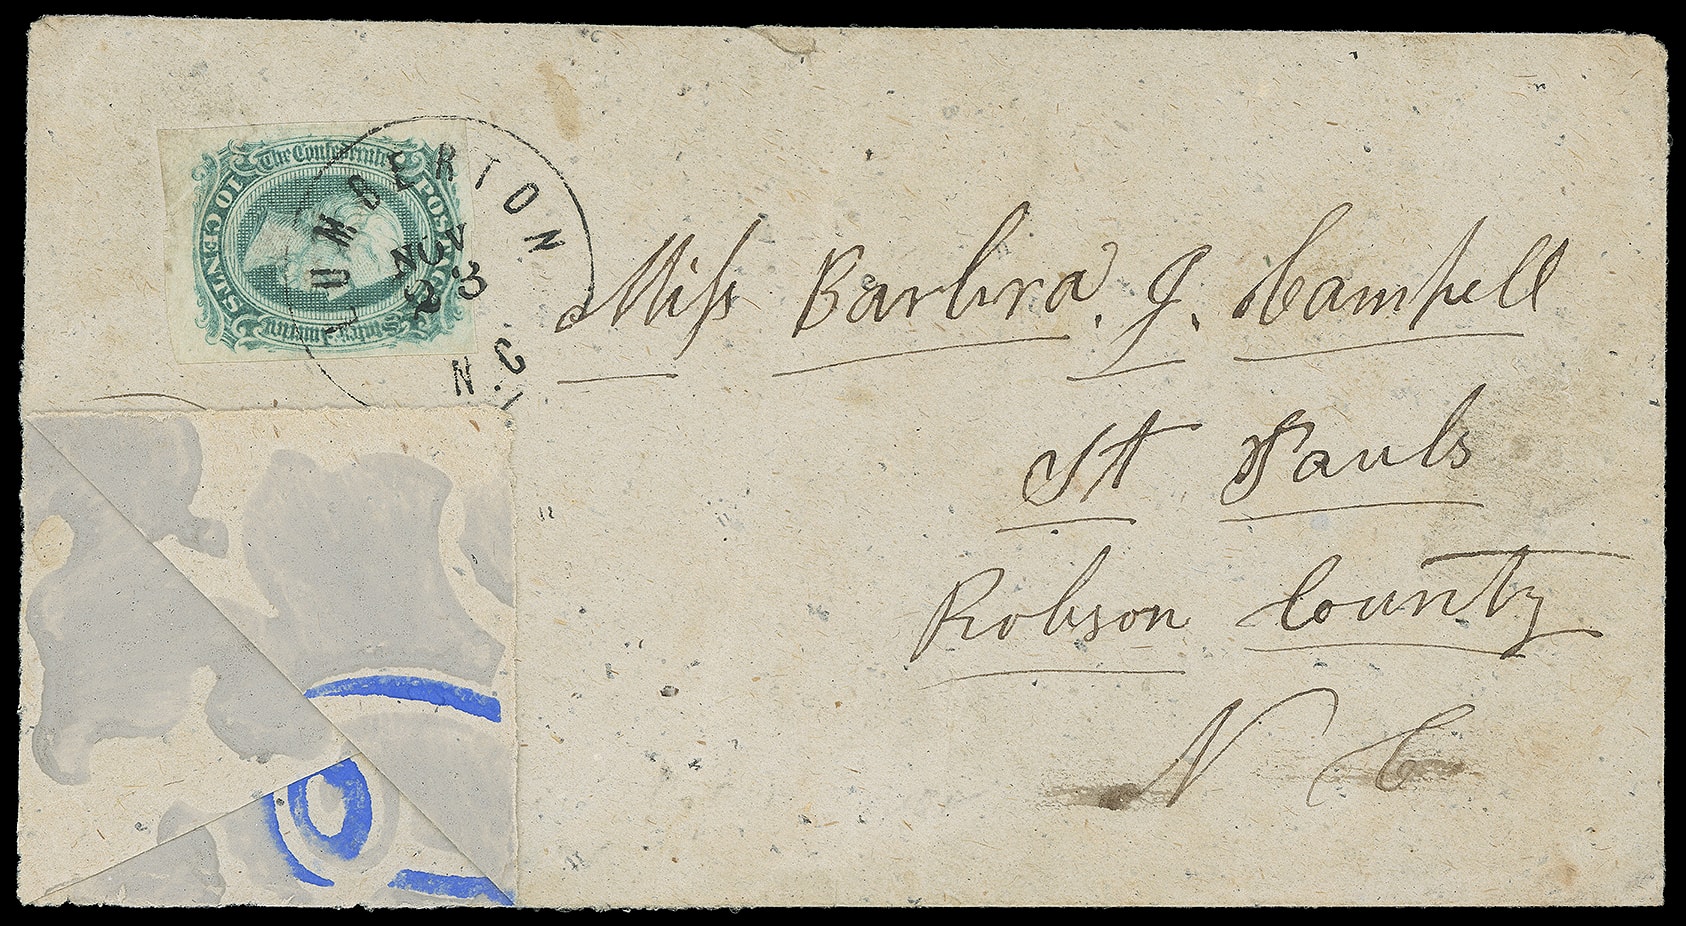 The Confederate
POSTAGE
States of America
10 CENTS
LUMBERTON
NOV
23
N.C.
Miss Barbra. J. Campell
St Pauls
Robson County
N C